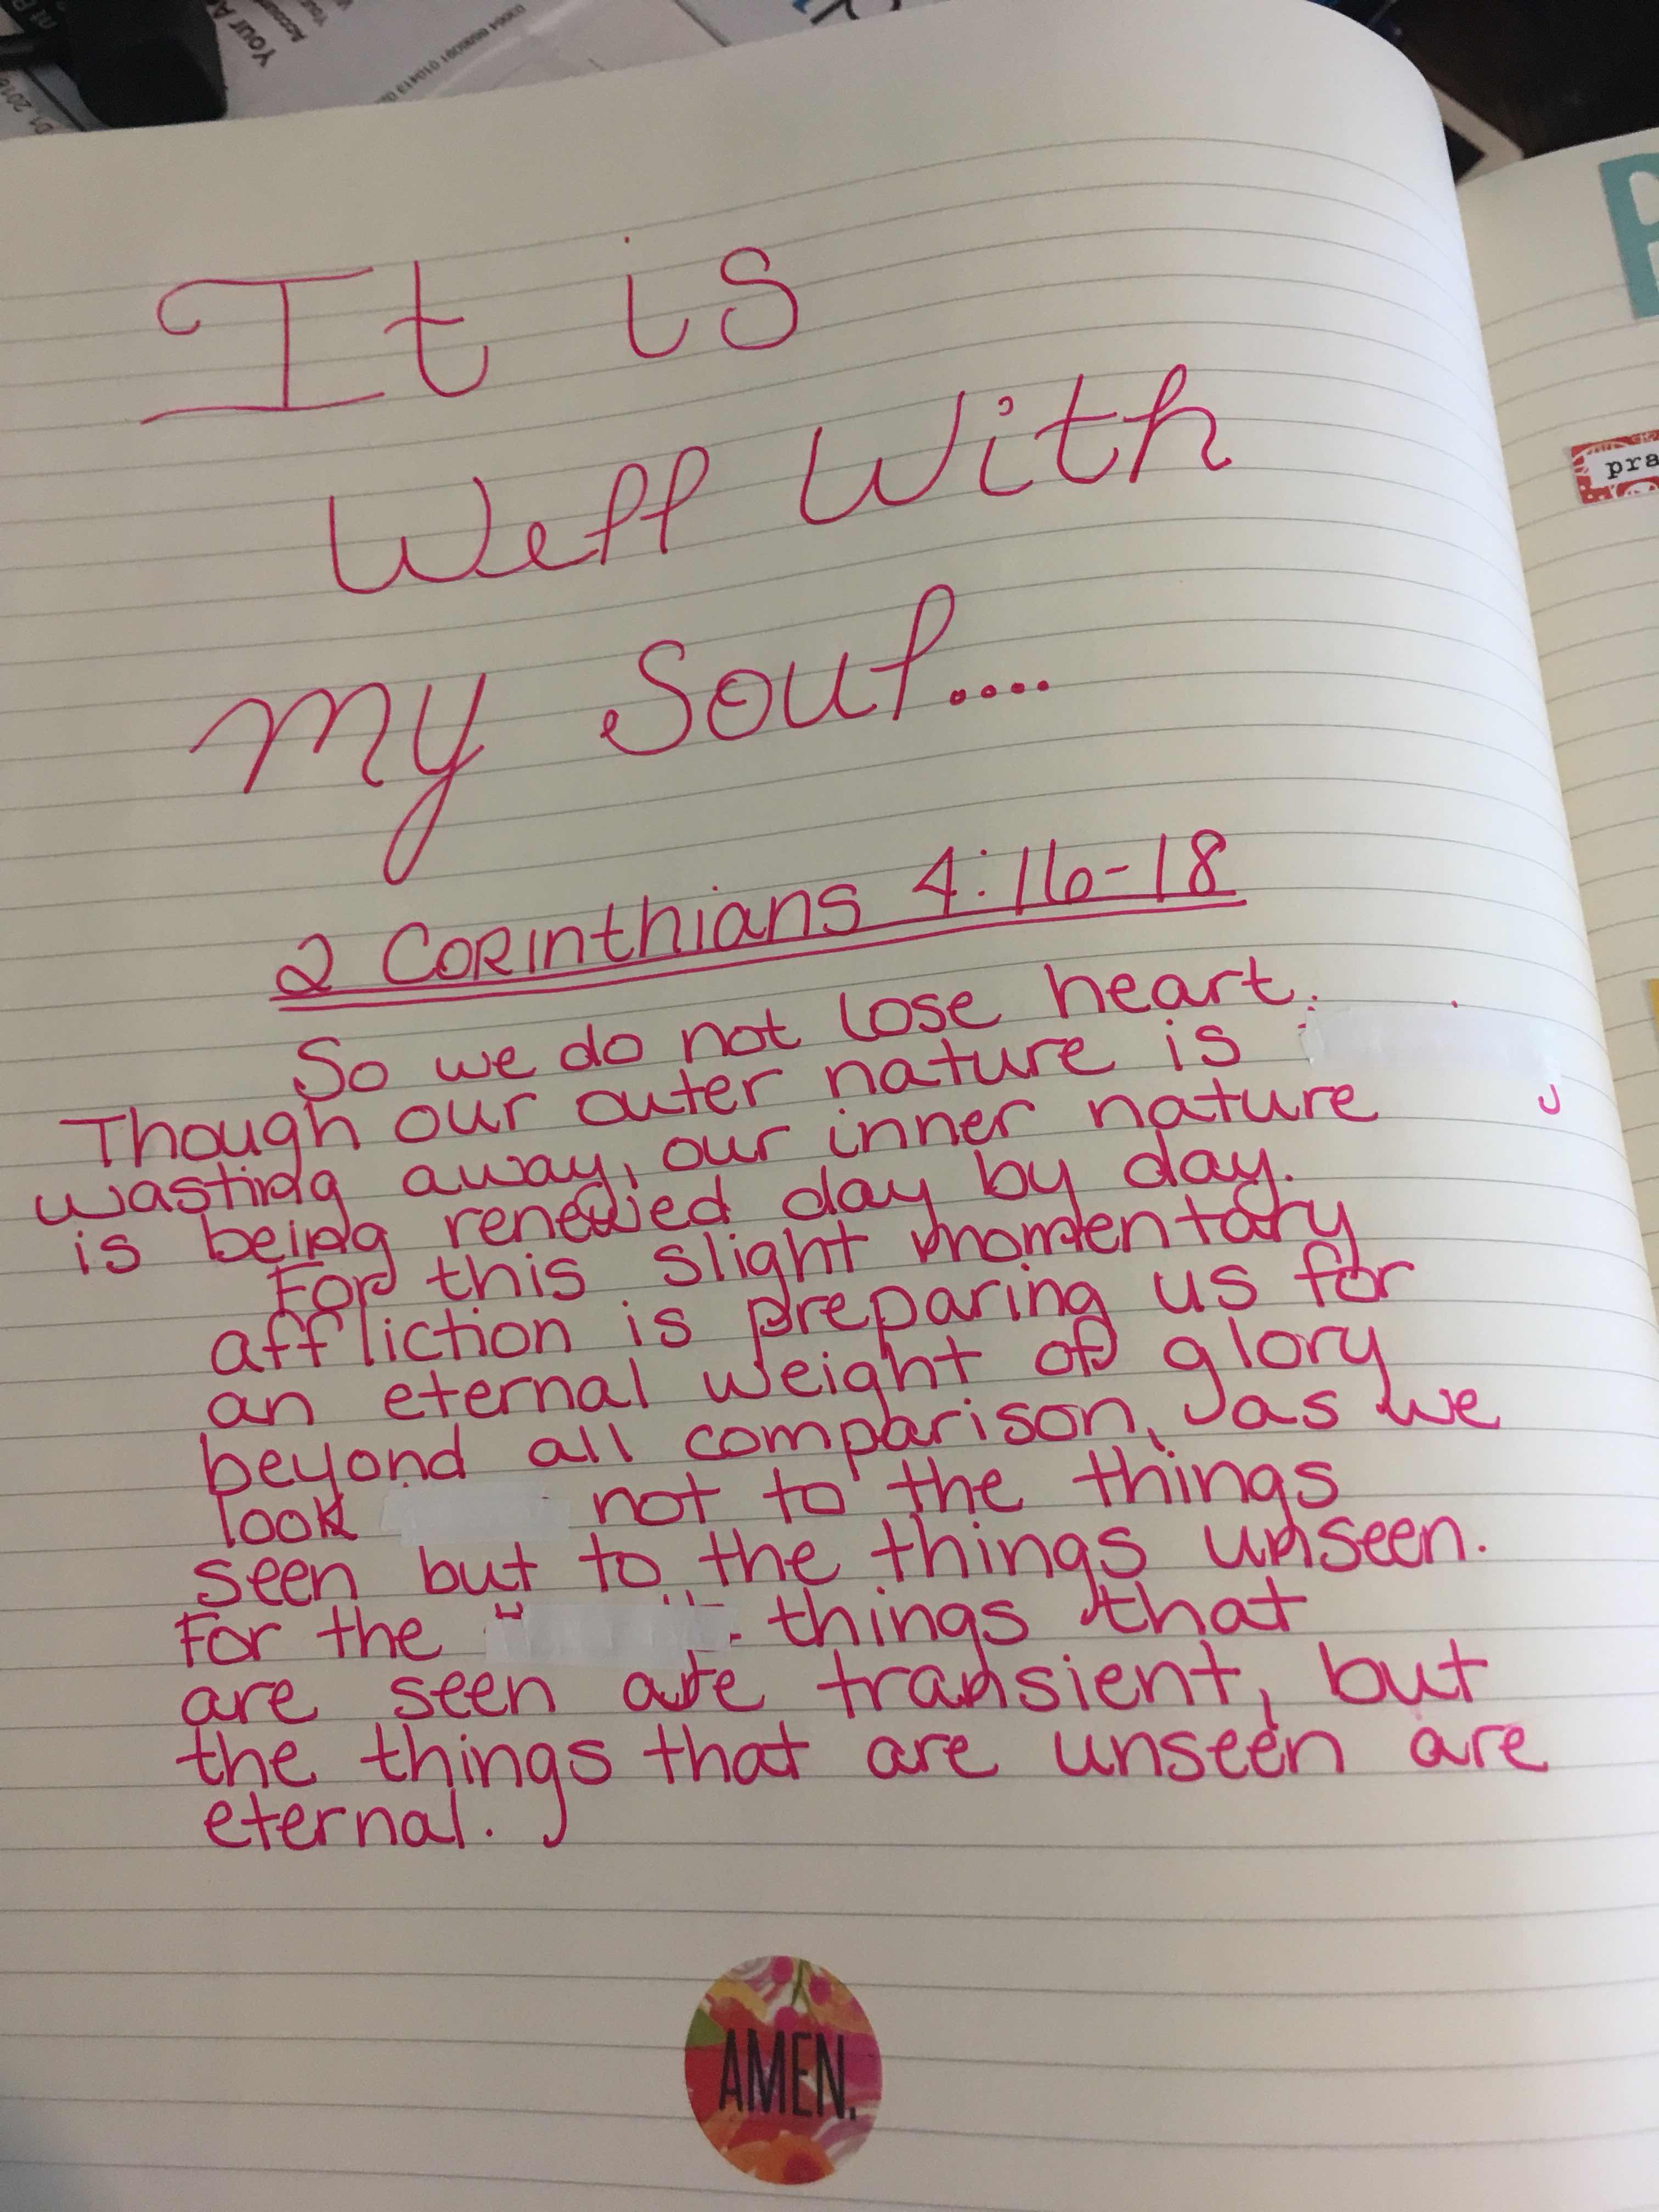 Your A
It is
Well With
my Soul....
2 Corinthians 4:16-18
So we do not lose heart.
Though our outer nature is
wasting away, our inner nature
is being renewed day by day.
For this slight momentary
affliction is preparing us for
an eternal weight of glory
beyond all comparison, as we
look not to the things
seen but to the things unseen.
For the things that
are seen are transient, but
the things that are unseen are
eternal.
AMEN.
pra